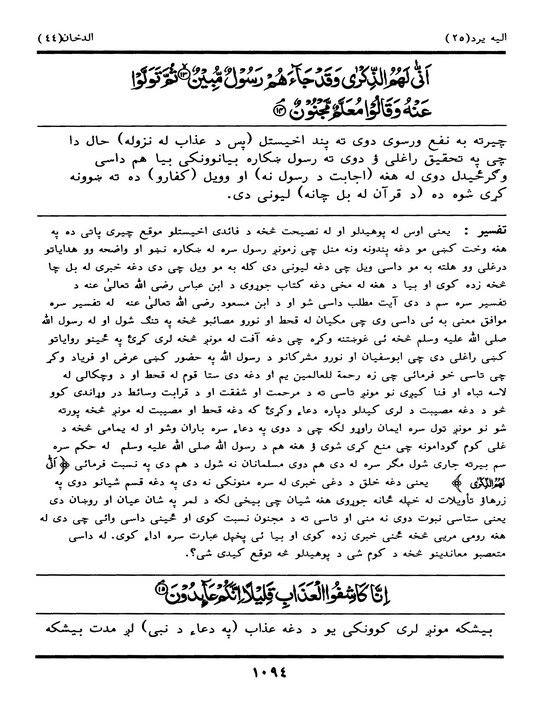 الیه یرد(۲۵)
الدخان(٤٤)
اَنّٰی لَهُمُ الذِّكْرٰی وَقَدْ جَآءَهُمْ رَسُوْلٌ مُّبِیْنٌ ۱۳ ثُمَّ تَوَلَّوْا
عَنْهُ وَقَالُوْا مُعَلَّمٌ مَّجْنُوْنٌ ۱۴
چیرته به نفع ورسوی دوی ته پند اخیستل (پس د عذاب له نزوله) حال دا
چی په تحقیق راغلی ؤ دوی ته رسول ښکاره بیانوونکی بیا هم داسی
وګرځیدل دوی له هغه (اجابت د رسول نه) او وویل (کفارو) ده ته ښوونه
کړی شوه ده (د قرآن له بل چانه) لیونی دی.
تفسیر : یعنی اوس له پوهیدلو او له نصیحت څخه د فائدی اخیستلو موقع چیری پاتی ده په
هغه وخت کښی مو دغه پندونه ونه منل چی زمونږ رسول سره له ښکاره نښو او واضحه وو هدایاتو
درغلی وو هلته به مو داسی ویل چی دغه لیونی دی کله به مو ویل چی دی دغه خبری له بل چا
څخه زده کوی او بیا د هغه له مخی دغه کتاب جوړوی د ابن عباس رضی الله تعالیٰ عنه د
تفسیر سره سم د دی آیت مطلب داسی شو او د ابن مسعود رضی الله تعالیٰ عنه له تفسیر سره
موافق معنی به ئی داسی وی چی مکیان له قحط او نورو مصائبو څخه په تنګ شول او له رسول الله
صلی الله علیه وسلم څخه ئی غوښتنه وکړه چی دغه آفت له مونږ څخه لری کړئ په ځینو روایاتو
کښی راغلی دی چی ابوسفیان او نورو مشرکانو د رسول الله په حضور کښی عرض او فریاد وکړ
چی تاسی خو فرمائی چی زه رحمة للعالمین یم او دغه دی ستا قوم له قحط او د وچکالی له
لاسه تباه او فنا کیږی نو مونږ تاسی ته د مرحمت او شفقت او د قرابت وسائط در وړاندی کوو
څو د دغه مصیبت د لری کیدلو دپاره دعاء وکړئ که دغه قحط او مصیبت له مونږ څخه پورته
شو نو مونږ ټول سره ایمان راوړو لکه چی د دوی په دعاء سره باران وشو او له یمامی څخه د
غلی کوم ګودامونه چی منع کړی شوی ؤ هغه هم د رسول الله صلی الله علیه وسلم له حکم سره
سم بیرته جاری شول مګر سره له دی هم دوی مسلمانان نه شول د هم دی په نسبت فرمائی ﴿ اَنّٰی
لَهُمُ الذِّكْرٰی ﴾ یعنی دغه خلق د دغی خبری له سره منونکی نه دی په دغه قسم شیانو دوی په
زرهاؤ تأویلات له خپله ځانه جوړوی هغه شیان چی بیخی لکه د لمر په شان عیان او روښان دی
یعنی ستاسی نبوت دوی نه منی او تاسی ته د مجنون نسبت کوی او ځینی داسی وائی چی دی له
هغه رومی مریی څخه ځنی خبری زده کوی او بیا ئی پخپل عبارت سره اداء کوی. له داسی
متعصبو معاندینو څخه د کوم شی د پوهیدلو څه توقع کیدی شی؟.
اِنَّا كَاشِفُوا الْعَذَابِ قَلِیْلًا اِنَّكُمْ عَآئِدُوْنَ ۱۵
بیشکه مونږ لری کوونکی یو د دغه عذاب (په دعاء د نبی) لږ مدت بیشکه
۱۰۹٤